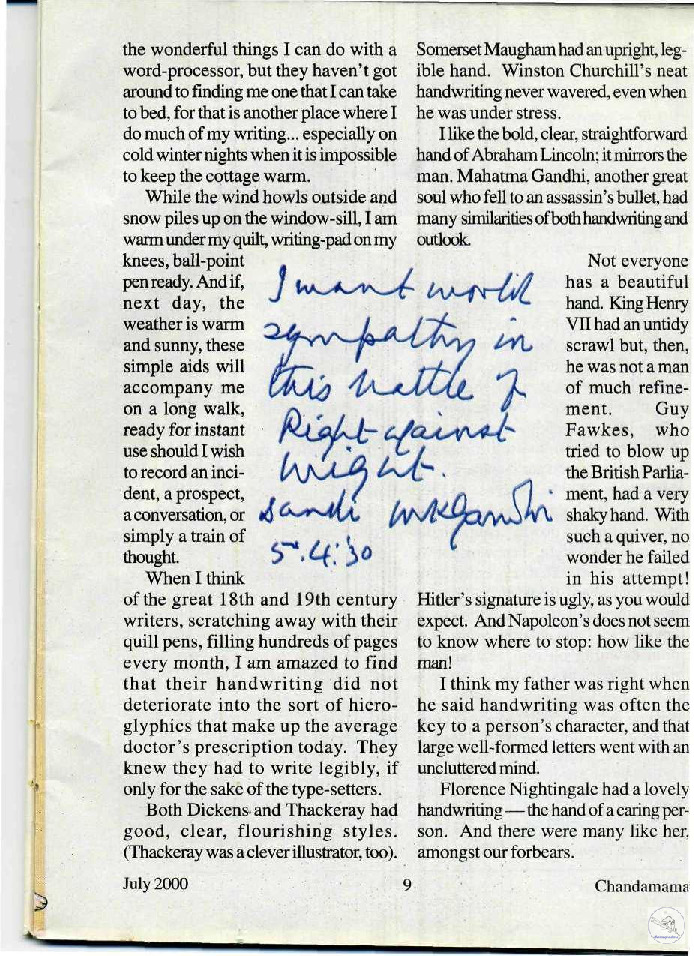 the wonderful things I can do with a
word-processor, but they haven't got
around to finding me one that I can take
to bed, for that is another place where I
do much of my writing... especially on
cold winter nights when it is impossible
to keep the cottage warm.
While the wind howls outside and
snow piles up on the window-sill, I am
warm under my quilt, writing-pad on my
knees, ball-point
pen ready. And if,
next day, the
weather is warm
and sunny, these
simple aids will
accompany me
on a long walk,
ready for instant
use should I wish
to record an inci-
dent, a prospect,
a conversation, or
simply a train of
thought.
When I think
of the great 18th and 19th century
writers, scratching away with their
quill pens, filling hundreds of pages
every month, I am amazed to find
that their handwriting did not
deteriorate into the sort of hiero-
glyphics that make up the average
doctor's prescription today. They
knew they had to write legibly, if
only for the sake of the type-setters.
Both Dickens and Thackeray had
good, clear, flourishing styles.
(Thackeray was a clever illustrator, too).
I want world
sympathy in
this battle of
Right against
might.
Dandi MKGandhi
5.4.'30
Somerset Maugham had an upright, leg-
ible hand. Winston Churchill's neat
handwriting never wavered, even when
he was under stress.
I like the bold, clear, straightforward
hand of Abraham Lincoln; it mirrors the
man. Mahatma Gandhi, another great
soul who fell to an assassin's bullet, had
many similarities of both handwriting and
outlook.
Not everyone
has a beautiful
hand. King Henry
VII had an untidy
scrawl but, then,
he was not a man
of much refine-
ment. Guy
Fawkes, who
tried to blow up
the British Parlia-
ment, had a very
shaky hand. With
such a quiver, no
wonder he failed
in his attempt!
Hitler's signature is ugly, as you would
expect. And Napoleon's does not seem
to know where to stop: how like the
man!
I think my father was right when
he said handwriting was often the
key to a person's character, and that
large well-formed letters went with an
uncluttered mind.
Florence Nightingale had a lovely
handwriting — the hand of a caring per-
son. And there were many like her,
amongst our forbears.
July 2000
9
Chandamama